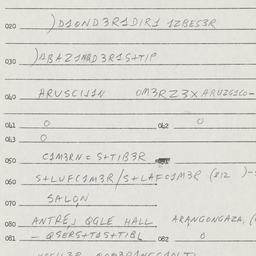 020 )DIOND3R1DIR1 1ZBES3R
030 )ABAZ1MAD3R1S+TIP
040 ARUSCI11N OM3RZ3XARUZG1CO-
041 0 042 0
043 0
050 C1M3RN = S+TIB3R
060 S+LUFC1M3R/S+LAFC1M3R (212 )-S
070 SALON
080 ANTRÉ, QGLE HALL, ARANGONGAZA, (
081 - QSERS+TAS+TIBL 082 0